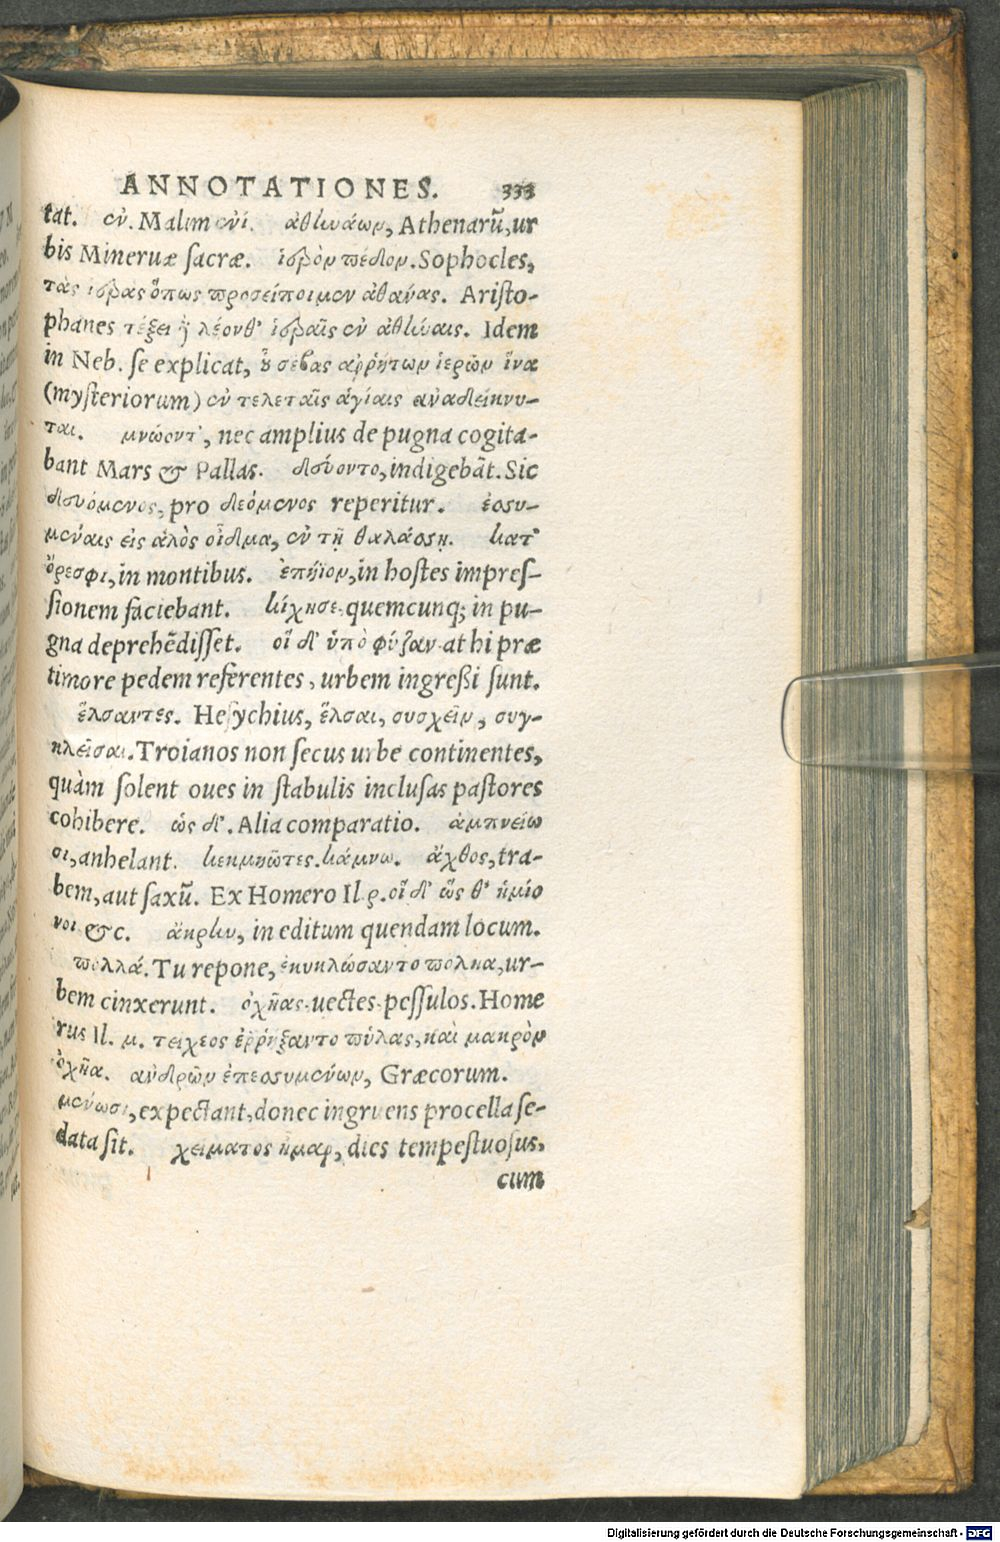 ANNOTATIONES. 333
tat. ἐν. Malim ἐνὶ. ἀθηνάων, Athenarũ, ur
bis Mineruæ sacræ. ἱερὸν πέδον. Sophocles,
τὰς ἱερὰς ὅπως προσείποιμεν ἀθάνας. Aristo-
phanes τέξει λέονθ' ἱεραῖς ἐν ἀθήναις. Idem
in Neb. se explicat, οὗ σέβας ἀρρήτων ἱερῶν ἵνα
(mysteriorum) ἐν τελεταῖς ἁγίαις ἀναδείκνυ-
ται. μνώοντ', nec amplius de pugna cogita-
bant Mars & Pallas. δεύοντο, indigebãt. Sic
δευόμενος, pro δεόμενος reperitur. ἐσσυ-
μέναις εἰς ἁλὸς οἶδμα, ἐν τῇ θαλάσσῃ. κατ'
ὄρεσφι, in montibus. ἐπήϊον, in hostes impres-
sionem faciebant. κίχησε. quemcunq; in pu-
gna deprehẽdisset. οἳ δ' ὑπὸ φύζαν. at hi præ
timore pedem referentes, urbem ingreßi sunt.
ἔλσαντες. Hesychius, ἔλσαι, συσχεῖν, συγ-
κλεῖσαι. Troianos non secus urbe continentes,
quàm solent oues in stabulis inclusas pastores
cohibere. ὡς δ'. Alia comparatio. ἀμπνείω
σι, anhelant. κεκμηῶτες. κάμνω. ἄχθος, tra-
bem, aut saxũ. Ex Homero Il. ρ. οἳ δ' ὥς θ' ἡμίο
νοι &c. ἄκρην, in editum quendam locum.
πολλά. Tu repone, ἐκυκλώσαντο πόληα, ur-
bem cinxerunt. ὀχῆας. uectes. pessulos. Home
rus Il. μ. τείχεος ἐρρήξαντο πύλας, καὶ μακρὸν
ὀχῆα. ἀνδρῶν ἐπεσσυμένων, Græcorum.
μένωσι, expectant, donec ingruens procella se-
data sit. χείματος ἦμαρ, dies tempestuosus,
cum
Digitalisierung gefördert durch die Deutsche Forschungsgemeinschaft - DFG